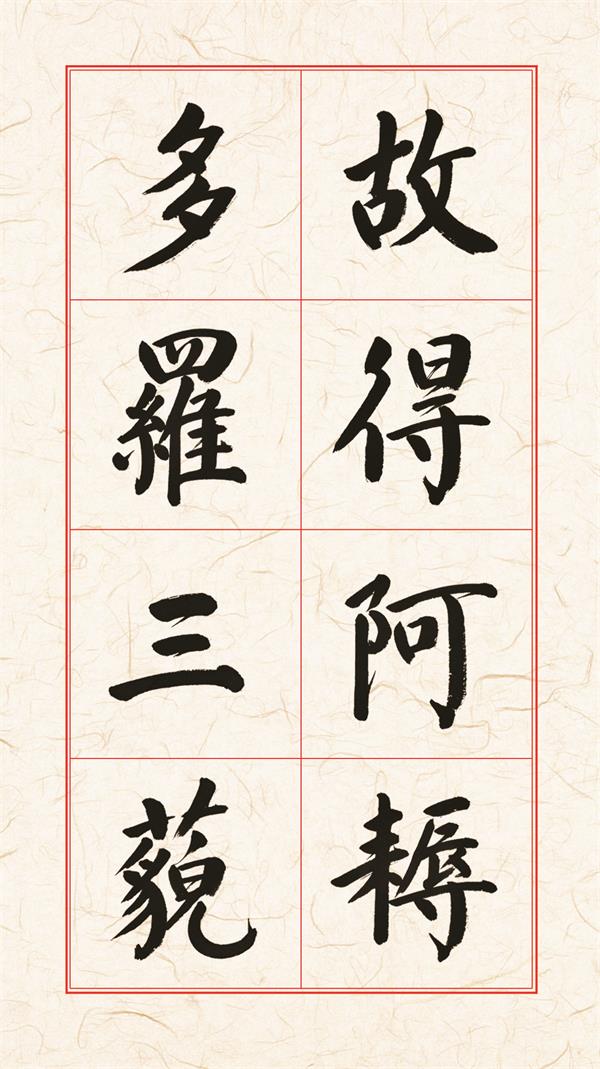 故得阿耨
多羅三藐